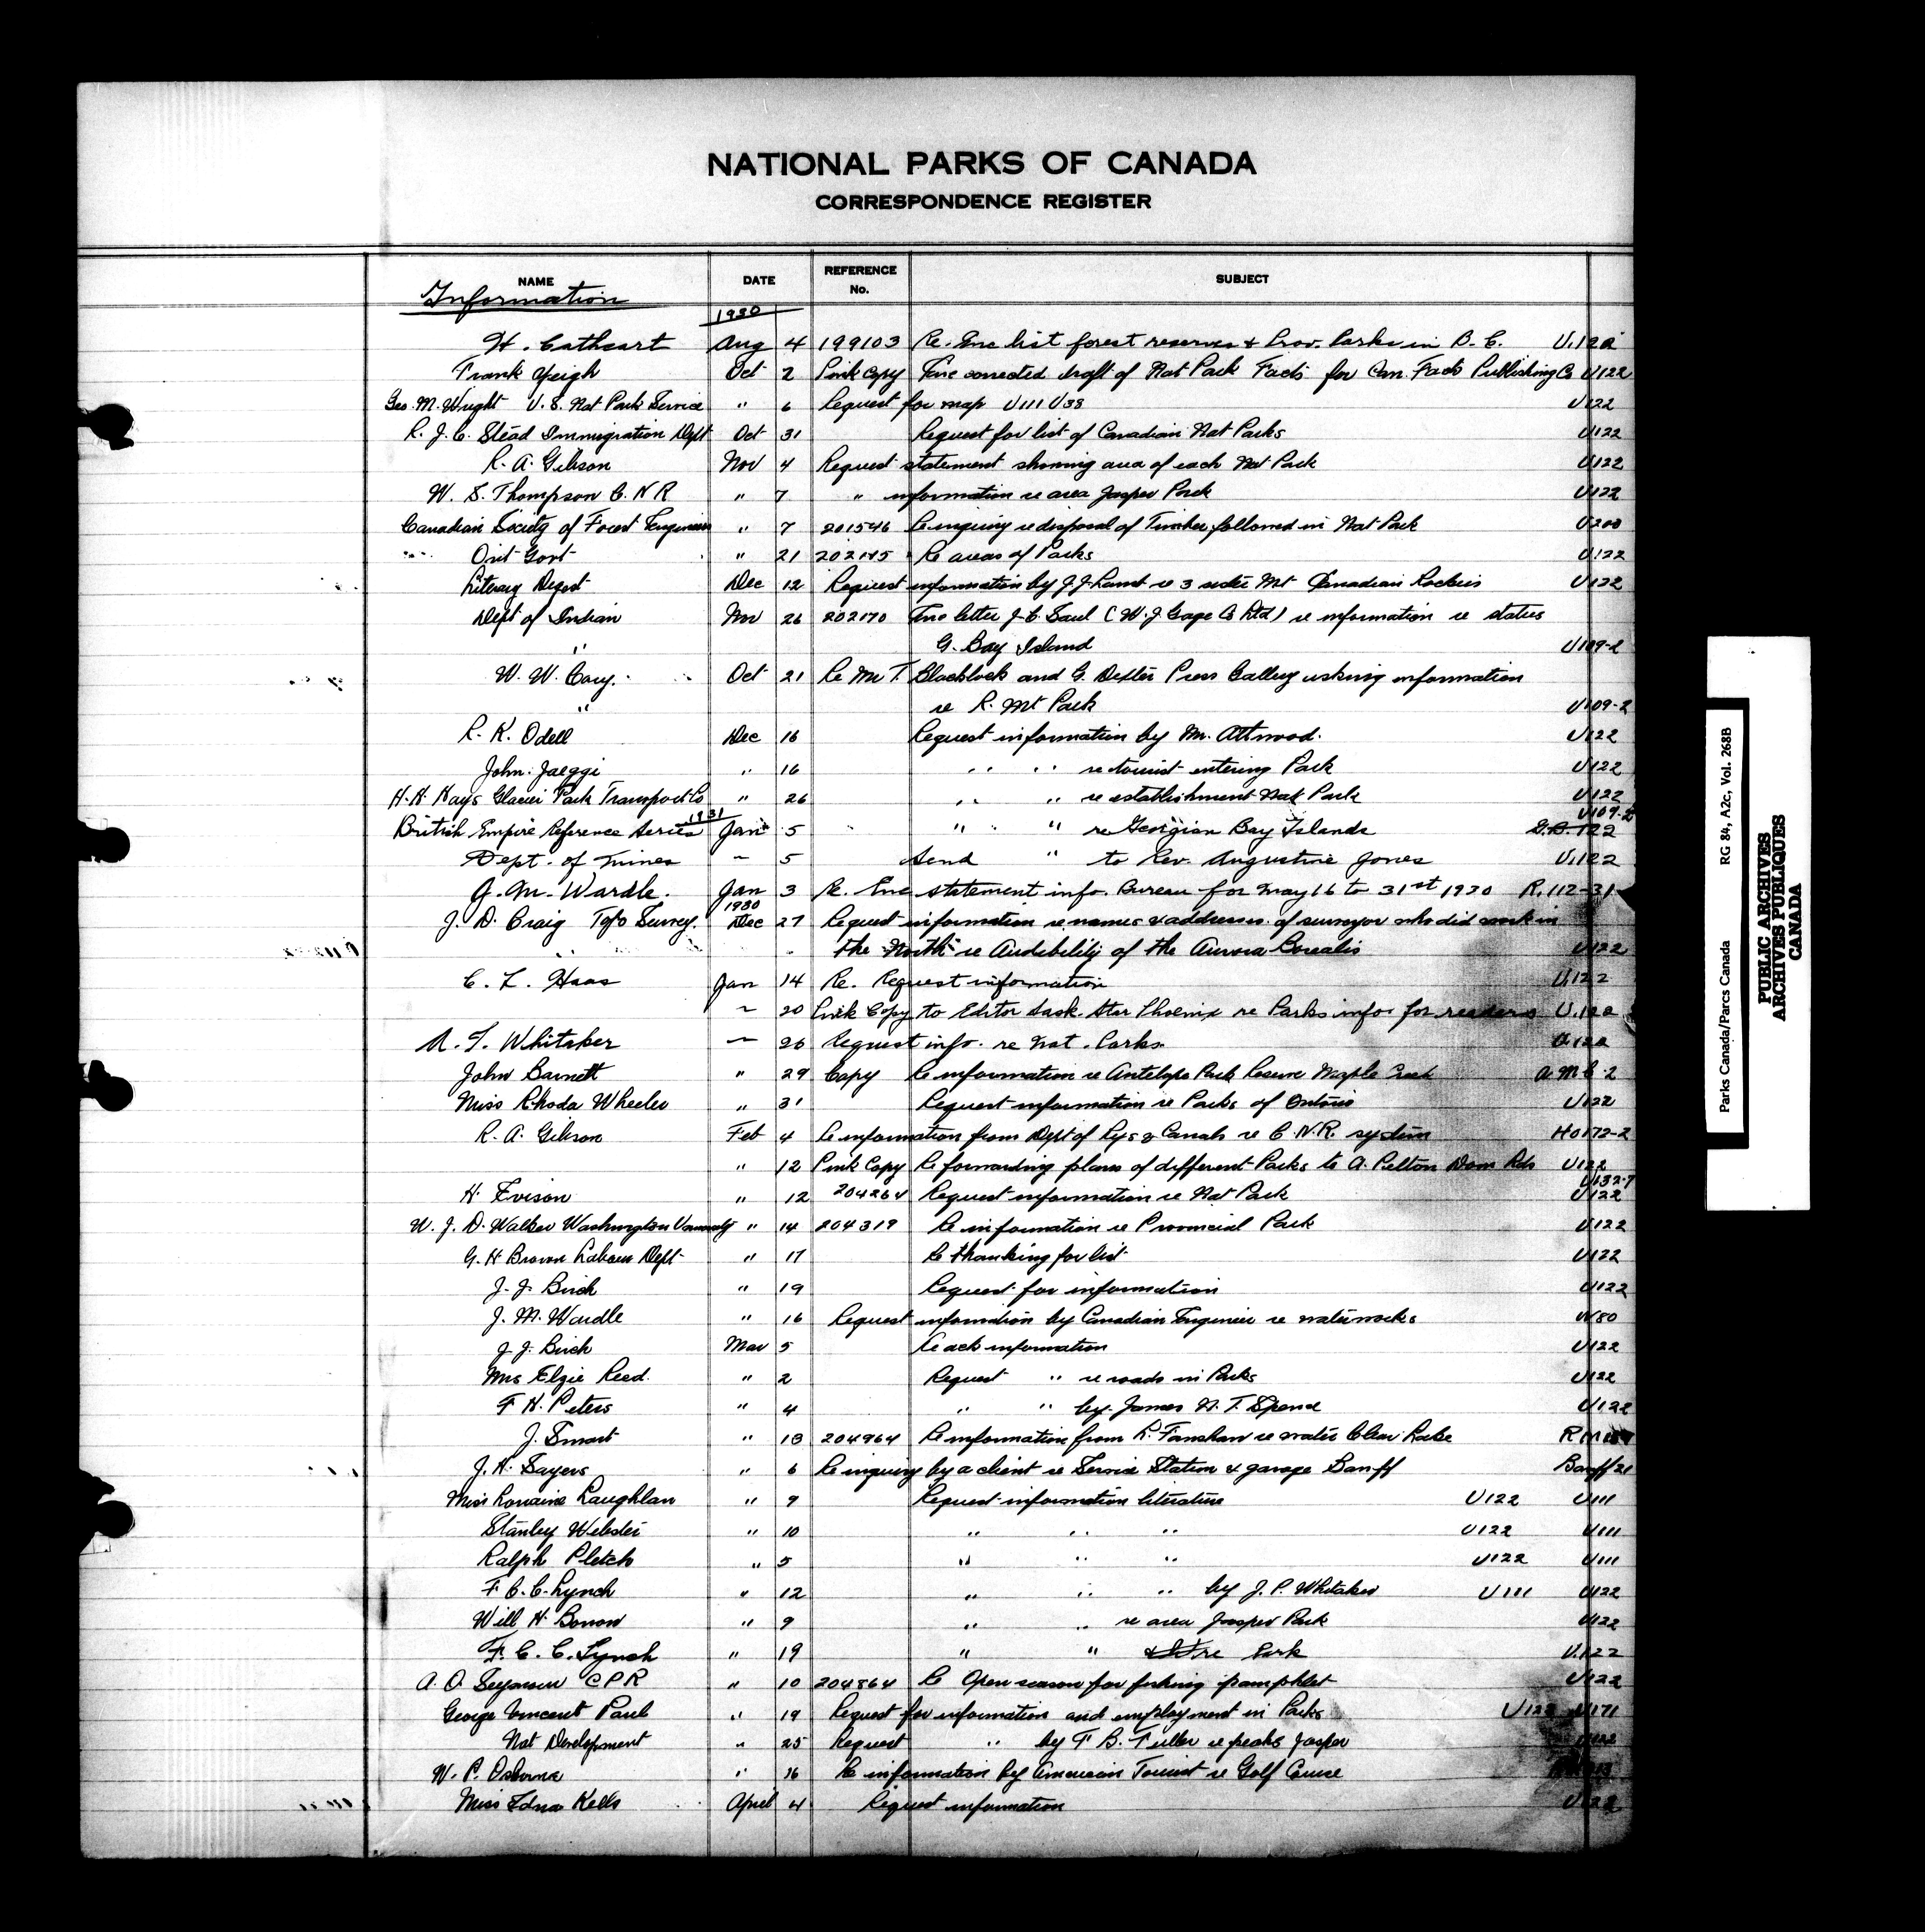 NATIONAL PARKS OF CANADA
CORRESPONDENCE REGISTER
NAME DATE REFERENCE No. SUBJECT
Information
1930
H. Cathcart Aug 4 199103 Re. Enc list forest reserves & Prov. Parks in B.C. U.122
Frank Yeigh Oct 2 Pink Copy Enc corrected draft of Nat Park Facts for Can. Facts Publishing Co U122
Geo. M. Wright U.S. Nat Park Service " 6 Request for map U111 U38 U122
R. J. C. Stead Immigration Dept Oct 31 Request for list of Canadian Nat Parks U122
R. A. Gibson Nov 4 Request statement showing area of each Nat Park U122
W. S. Thompson C.N.R " 7 " information re area Jasper Park U122
Canadian Society of Forest Engineers " 7 201546 Re inquiry re disposal of Timber followed in Nat Park U200
Ont Govt " 21 202145 Re areas of Parks U122
Literary Digest Dec 12 Request information by J. J. re 3 Mt Canadian Rockies U122
Dept of Indian Nov 26 202170 Enc letter J. C. Saul (W. J. Gage Co Ltd) re information re status
" G. Bay Island U109-2
W. W. Cory. Oct 21 Re Mr T. Blacklock and G. Dexter Press Gallery asking information
" re R. Mt Park U109-2
R. K. Odell Dec 16 Request information by Mr. Attwood. U122
John Jaeggi " 16 " " re tourist entering Park U122
H. H. Hays Glacier Park Transport Co " 26 " " re establishment Nat Park U122
British Empire Reference Series 1931 Jan 5 " " re Georgian Bay Islands G.B. 122 U109-2
Dept. of Mines ~ 5 Send " to Rev. Augustine Jones U.122
J. M. Wardle. Jan 3 Re. Enc statement info. Bureau for May 16 to 31st 1930 R.112-31
J. D. Craig Topo Survey. 1930 Dec 27 Request information re names & addresses of surveyor who did work in
" the North re Audibility of the Aurora Borealis U122
C. L. Haas Jan 14 Re. Request information U.122
~ 20 Pink Copy to Editor Sask. Star Phoenix re Parks info. for readers U.122
Whitaker ~ 26 Request info. re Nat. Parks. U.122
John Barnett " 29 Copy Re information re Antelope Park Reserve Maple Creek A M C 2
Miss Rhoda Wheeler " 31 Request information re Parks of Ontario U122
R. A. Gibson Feb 4 Re information from Dept of Rys & Canals re C.N.R. system H0172-2
" 12 Pink Copy Re forwarding plans of different Parks to A. Pelton Dom Rds U122
H. Evison " 12 204264 Request information re Nat Park U132-7 U122
W. J. D. Walker Washington " 14 204319 Re information re Provincial Park U122
G. H Brown Labour Dept " 17 Re thanking for list U122
J. J. Birch " 19 Request for information U122
J. M. Wardle " 16 Request information by Canadian Engineer re waterworks W80
J. J. Birch Mar 5 Re ack information U122
Mrs Elzie Reed. " 2 Request " re roads in Parks U122
F. H. Peters " 4 " " by James H. T. Spence U122
J. Smart " 13 204964 Re information from R. Fanshaw re water Clear Lake
J. H. Sayers " 6 Re inquiry by a client re Service Station & garage Banff Banff 21
Miss Lorraine Laughlan " 9 Request information literature U122 U111
Stanley Webster " 10 " " " U122 U111
Ralph Pletch " 5 " " " U122 U111
F. C. C. Lynch " 12 " " " by J. P. Whitaker U111 U122
Will H. Bonow " 9 " " re area Jasper Park U122
F. C. C. Lynch " 19 " " re Park U.122
A. O. Seymour C P R " 10 204864 Re Open season for fishing pamphlet U122
George Vincent Paul " 19 Request for information and employment in Parks U122 U171
Nat Development " 25 Request " by F. B. Fuller re peaks Jasper U122
W. P. Osborne " 16 Re information by American Tourist re Golf Course
Miss Edna Kells April 4 Request information U122
Parks Canada/Parcs Canada RG 84, A2c, Vol. 268B
PUBLIC ARCHIVES
ARCHIVES PUBLIQUES
CANADA